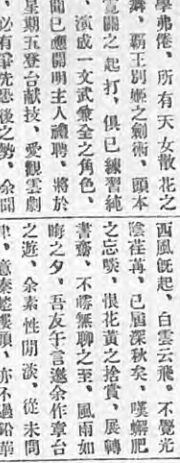 學弗倦、所有天女散花之
舞、霸王別姬之劍術、頭本
關之起打、俱已練習純
、演成一文武兼全之角色、
聞已應開明主人禮聘、將於
星期五登台献技、愛觀雲劇
、必有爭先恐後之勢、余聞
西風旣起、白雲云飛、不覺光
陰荏苒、已屆深秋矣、嘆蟹肥
之忘啖、恨花黃之捨賞、展轉
書齋、不勝無聊之至、風雨如
晦之夕、吾友午言邀余作章台
之遊、余素性閒淡、從未問
津、意秦樓頭、亦不過鉛華